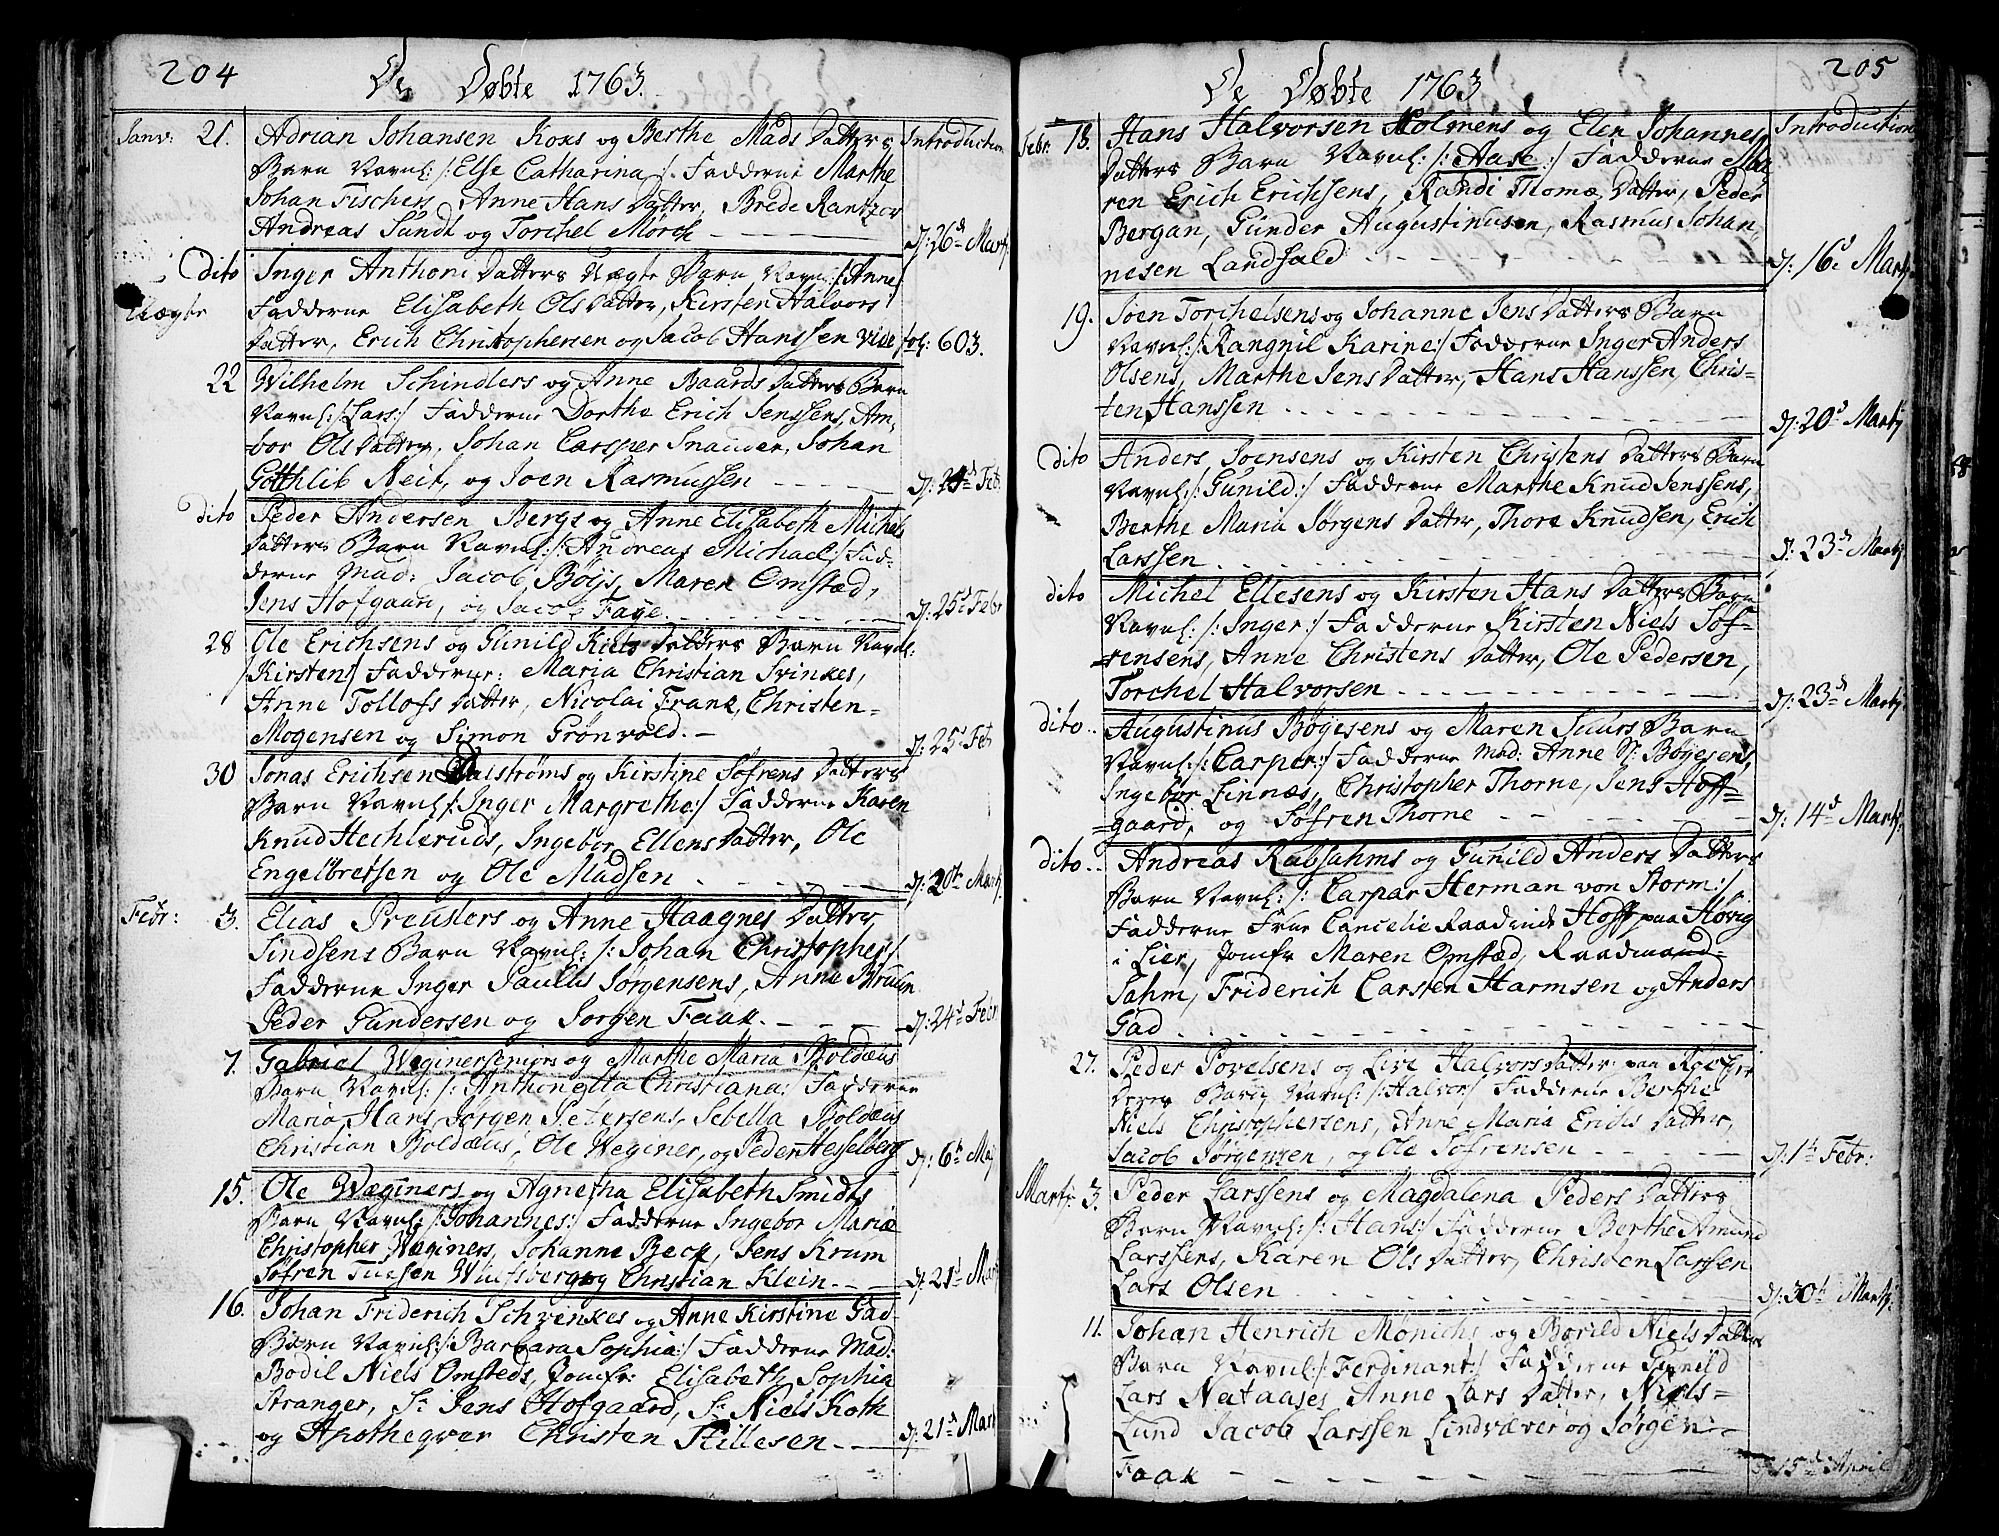 204
De Døbte 1763.
Janv: 21. Adrian Johansen Koxs og Berthe Mads Datters Introduction
Barn Navnl: /: Else Catharina /: Fadderne Marthe
Johan Fischers, Anne Hans Datter, Brede Rantzov
Andreas Sundt og Torchel Mörch d: 26de Martj
Dito Inger Anthoni Datters Uægte Barn Navnl: /: Anne /
Uægte Fadderne Elisabeth Ols Datter, Kirsten Halvors
Datter, Erich Christophersen og Jacob Hanssen vide fol: 603.
22 Wilhelm Schindlers og Anne Baards Datters Barn
Navnl: /: Lars :/ Fadderne Dorthe Erich Jenssens, Am-
bor Ols Datter, Johan Carsper Snauder, Johan
Gotthlib Neit, og Joen Rasmussen d: 24de Feb
dito Peder Andersen Bergs og Anne Elisabeth Michels
Datters Barn Navnl: /: Andreas Michael :/ Fad-
derne Mad: Jacob Böijs, Maren Omstæd,
Jens Hofgaard, og Jacob Faye. d: 25d Febr
28 Ole Erichsens og Gunild Niels Datters Barn Navnl:
/Kirsten/ Fadderne: Maria Christian Svinkes,
Anne Tollofs Datter, Nicolai Frank, Christen
Mogensen og Simon Grönvold. d: 25d Feb
30 Jonas Erichsen Dalströms og Kirstine Söfrens Datters
Barn Navnl /: Inger Margrethe :/ Fadderne Karen
Knud Hechleruds, Ingebor Ellens Datter, Ole
Engelbretsen og Ole Madsen d: 20de Martj.
Febr: 3. Elias Preuslers og Anne Haagnes Datter
Lindsens Barn Navnl: /: Johan Christopher /
Fadderne Inger Paulus Jörgensens, Anne Bruun
Peder Gundersen og Jörgen Faak. d: 24d Febr
7. Gabriel Weginerseniors og Marthe Maria Boldæus
Barn Navnl: /: Anthonetta Christiana: / Fadderne
Maria Hans Jörgen Petersens, Sebella Boldæus
Christian Boldæus, Ole Weginer, og Peder Hesselberg d: 6te Maj
15. Ole Weginers og Agnetha Elisabeth Smidts
Barn Navnl: /: Johannes :/ Fadderne Ingebor Mariæ
Christopher Weginers, Johanne Beck, Jens Krum
Söfren Tuesen Wulfsberg og Christian Klein d: 21d Mart
16. Johan Friderich Schvenkes og Anne Kirstine Gad
Barn Navnl: /: Barbara Sophia :/ Fadderne Mad:
Bodil Niels Omsteds, Jomfr: Elisabeth Sophia
Stranger, Sr Jens Hofgaard, Sr Niels Koth
og Apotheqver Christen Stillesen d: 21d Mart
205
De Døbte 1763
Febr: 13. Hans Halvorsen Holmens og Elen Johannes Introduction
Datters Barn Navnl: /: Aase :/ Fadderne Ma-
ren Erich Erichsens, Randi Thomæ Datter, Peder
Bergan, Gunder Augustinusen, Rasmus Johan-
nesen Landfald d: 16d Martj
19. Joen Torchelsens og Johanne Jens Datters Barn
Navnl: /: Rangnil Karine :/ Fadderne Inger Anders
Olsens, Marthe Jens Datter, Hans Hanssen, Chris-
ten Hanssen d: 20d Martj
dito Anders Joensens og Kirsten Christens Datters Barn
Navnl: /: Gunild :/ Fadderne Marthe Knud Jenssens,
Berthe Maria Jörgens Datter, Thore Knudsen, Erich
Larssen d: 23d Martj
dito Michel Ellesens og Kirsten Hans Datters Barn
Navnl: /: Inger :/ Fadderne Kirsten Niels Söf-
rensens, Anne Christens Datter, Ole Pedersen,
Torchel Halvorsen d: 23d Martj
dito.. Augustinus Bøyesens og Maren Juurs Barn
Navnl: /: Carper :/ Fadderne Mad: Anne N: Bøyesens,
Ingebor Linnæs, Christopher Thorne, Jens Hoff-
gaard, og Söfren Thorne d: 14d Martj
dito.. Andreas Rabsahms og Gunild Anders Datters
Barn Navnl: /: Carpar Herman von Storm :/
Fadderne Frue Cancelie Raadinde Hoff paa Høvig
i Lier, Jomfr Maren Omstæd, Raadmand
Sahm, Friderich Carsten Harmsen og Anders
Gad
27. Peder Povelsens og Live Halvors Datter paa
Deres Barn Navnl: /: Halvor / Fadderne Berthe
Niels Christophersens, Anne Maria Erichs Datter,
Jacob Jørgensen, og Ole Söfrensen d: 1te Febr:
Martj: 3. Peder Larssens og Magdalena Peders Datters
Barn Navnl: /: Hans :/ Fadderne Berthe Amund
Larssens, Karen Ols Datter, Christen Larssen
Lars Olsen d: 30te Martj:
11. Johan Henrich Mönichs og Borild Niels Datters
Barn Navnl: /: Ferdinant :/ Fadderne Gunild
Lars Nataases Anne Lars Datter, Niels
Lund Jacob Larssen Lindvæver og Jörgen
Faak d: 15d April